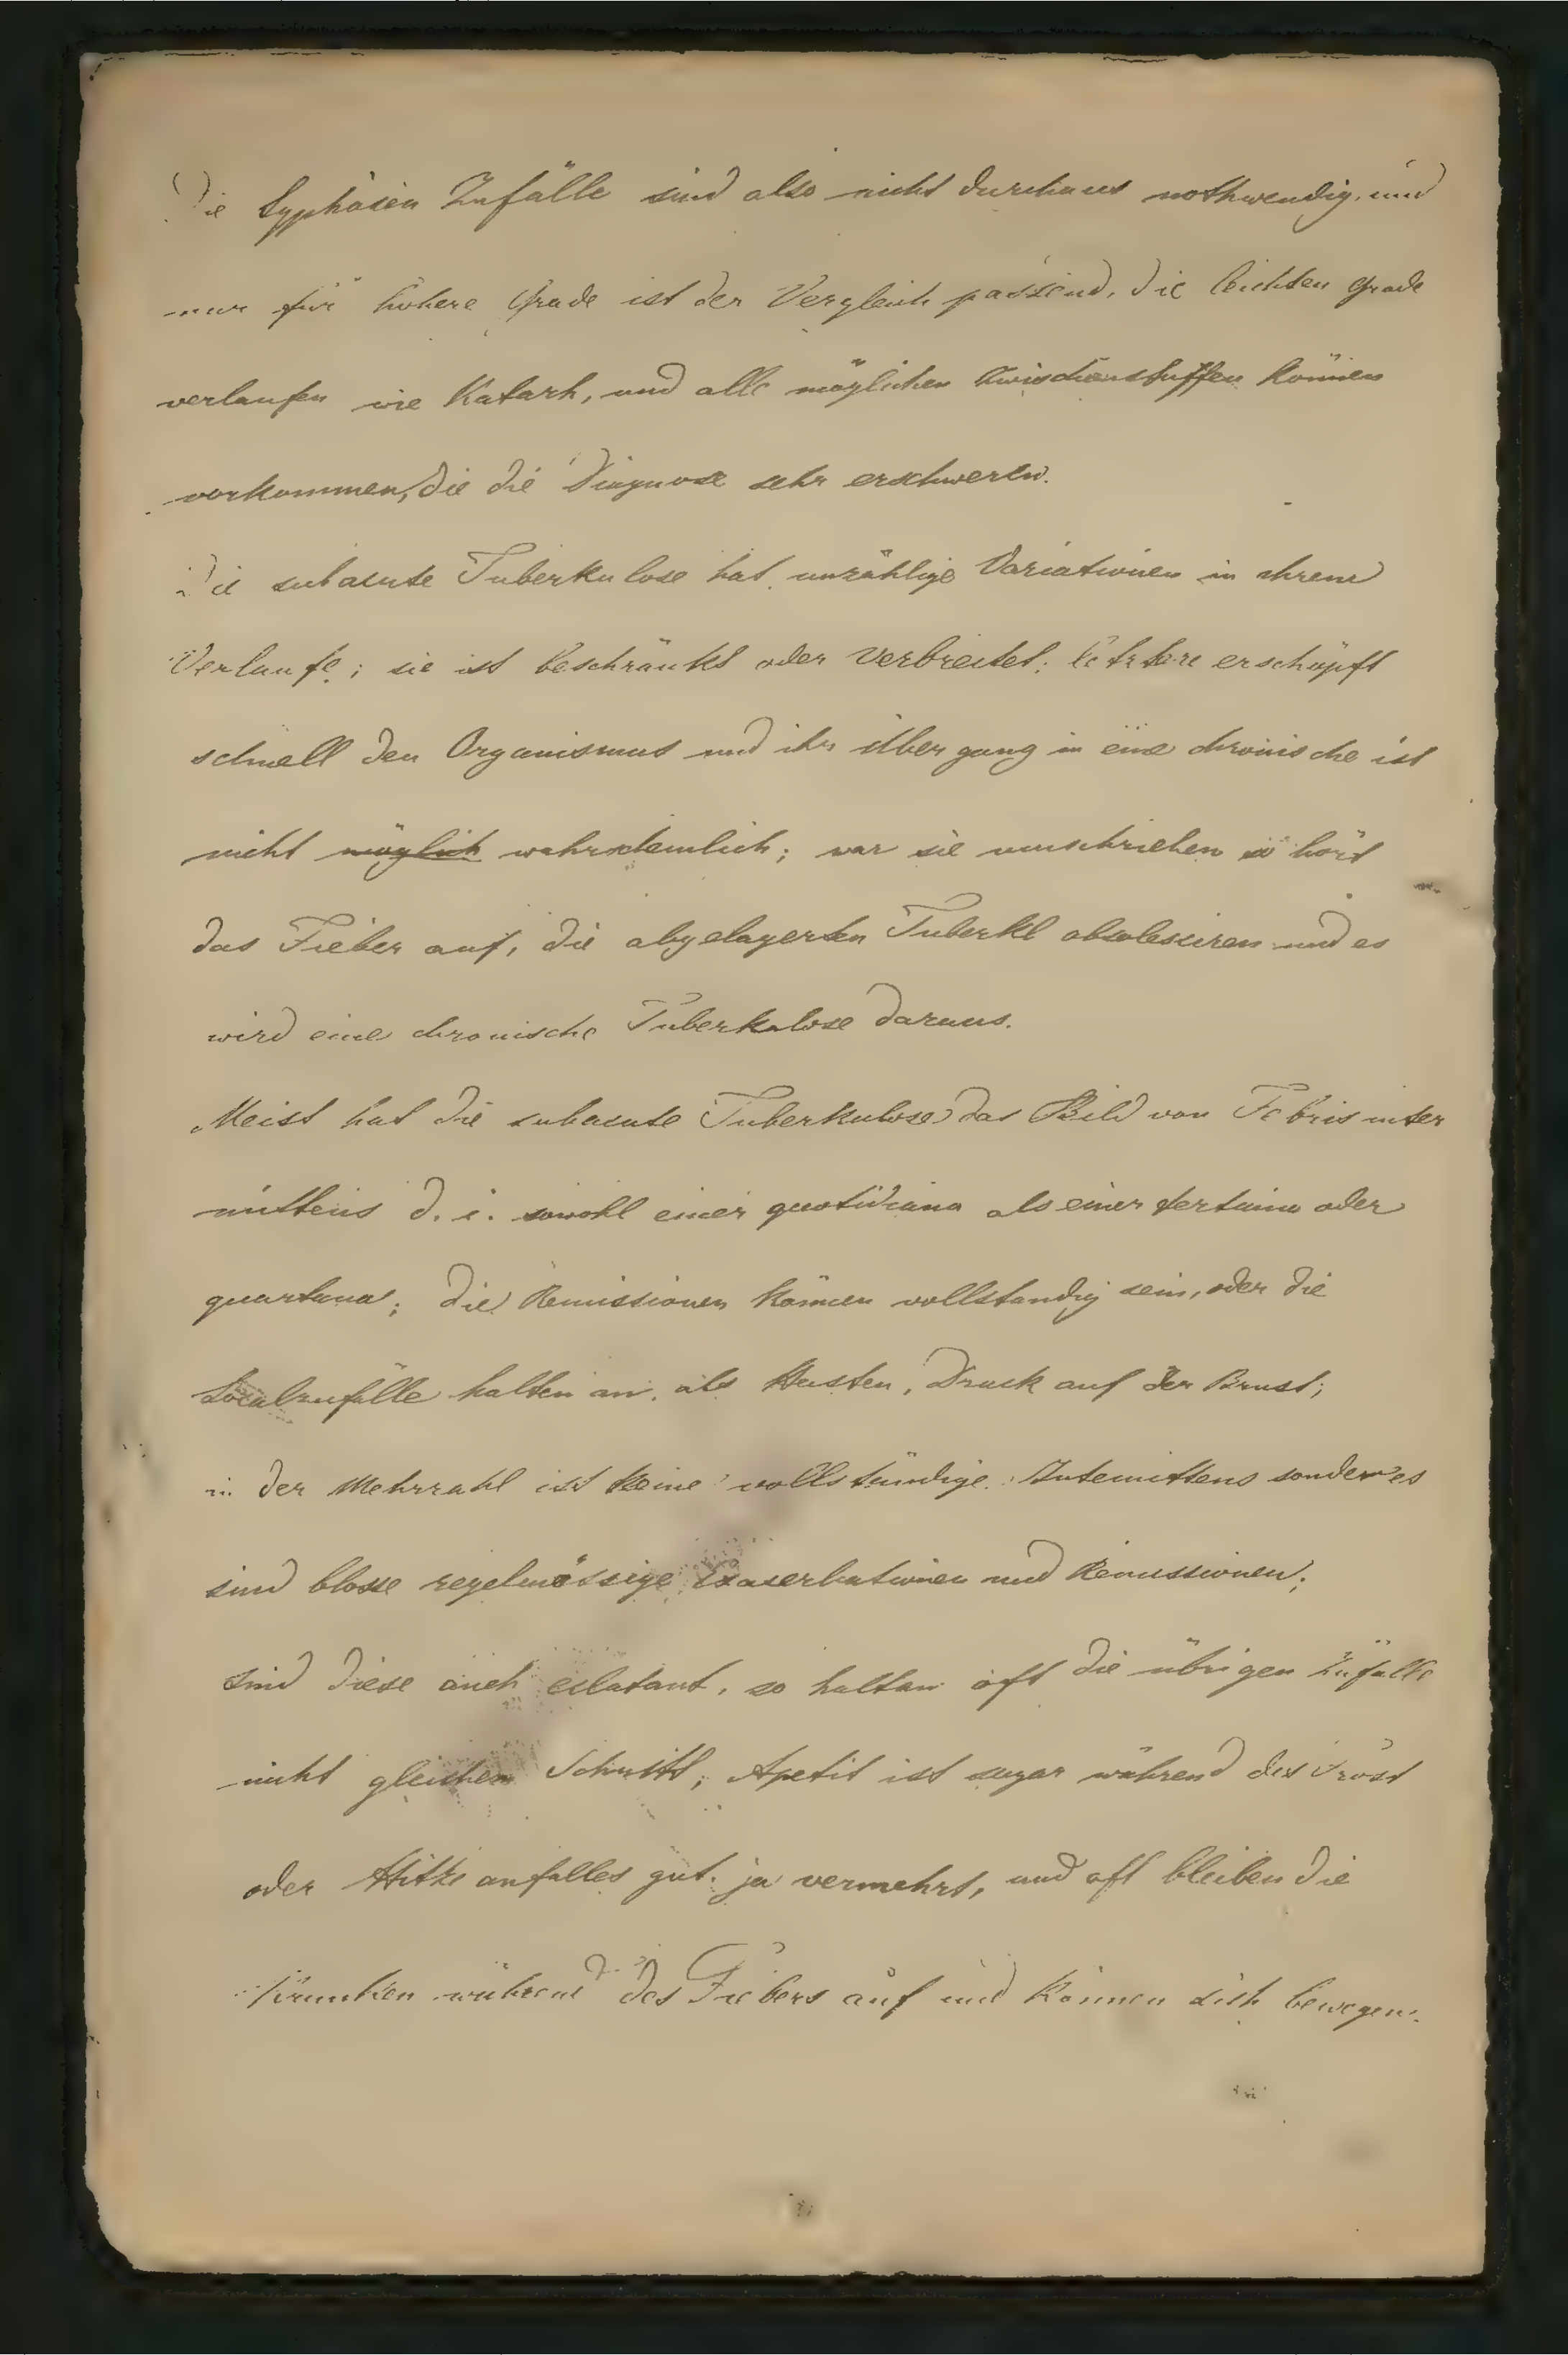 Die typhösen Zufälle sind also nicht durchaus nothwendig, und
nur für höhere Grade ist der Vergleich passend, die leichten Grade
verlaufen wie Katarh, und alle möglichen Zwischenstuffen können
vorkommen, die die Diagnose sehr erschweren.
Die subacute Tuberkulose hat unzählige Variationen in ihrem
Verlaufe; sie ist beschränkt oder verbreitet; letztere erschöpft
schnell den Organismus und ihr übergang in eine chronische ist
nicht möglich wahrscheinlich; war sie umschrieben so hört
das Fieber auf, die abgelagerten Tuberkl obsolesciren und es
wird eine chronische Tuberkulose daraus.
Meist hat die subacute Tuberkulose das Bild von Febris inter
mittens d. i. sowohl einer quotidiana als einer tertiana oder
quartana; die Remissionen können vollständig sein, oder die
Localzufälle halten an, als Husten, Druck auf der Brust;
in der Mehrzahl ist keine vollständige Intemittens sondern es
sind blosse regelmässige Exacerbationen und Remissionen;
sind diese auch eclatant, so halten oft die übrigen Zufälle
nicht gleichen Schritt; Apetit ist sogar während des Frost
oder Hitze anfalles gut, ja vermehrt, und oft bleiben die
Kranken während des Fiebers auf und können sich bewegen.